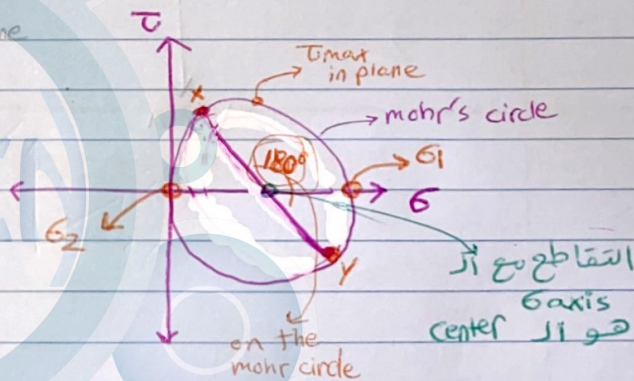 τ
τmax
in plane
x
mohr's circle
180°
σ1
σ
σ2
y
التقاطع مع الـ
σ axis
هو الـ center
on the
mohr circle